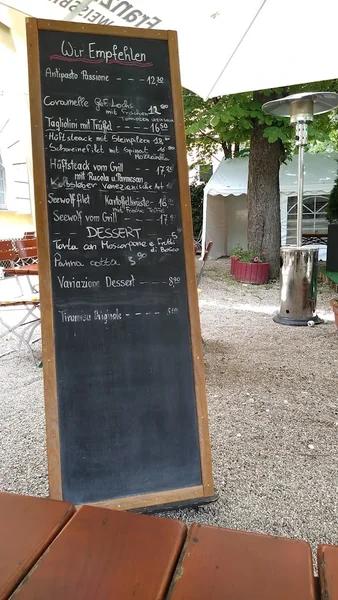 Franz
WEISSB
Wir Empfehlen
Antipasto Passione --- 12,80
Caramelle gef. Lachs
mit frischen 12,80
Tagliolini mit Trüffel --- 16,50
- Hüftsteack mit Steinpilzen 18,
- Schweinefilet mit Spinat 16
Hüftsteack vom Grill 17,
mit Rucola u Parmesan
Kalbsleber Venezianische Art
Seewolffilet Kartoffelkruste- 16,
Seewolf vom Grill --- 17,
DESSERT
Torta con Mascarpone e Frutti 5
di Bosco
Panna cotta 5,90
Variazione Dessert ---- 8,90
Tiramisu Originale ----